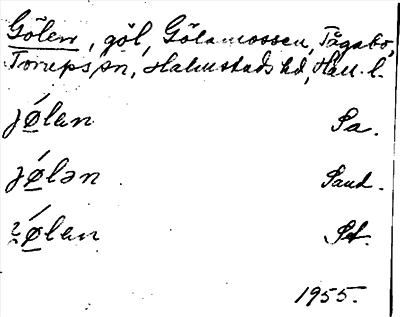 Gölen, göl, Gölamossen, Tågabo,
Torups sn, Halmstads hd, Hall. l.
jö́lan Sa.
jö́lən Sand.
ö́lan St.
1955.